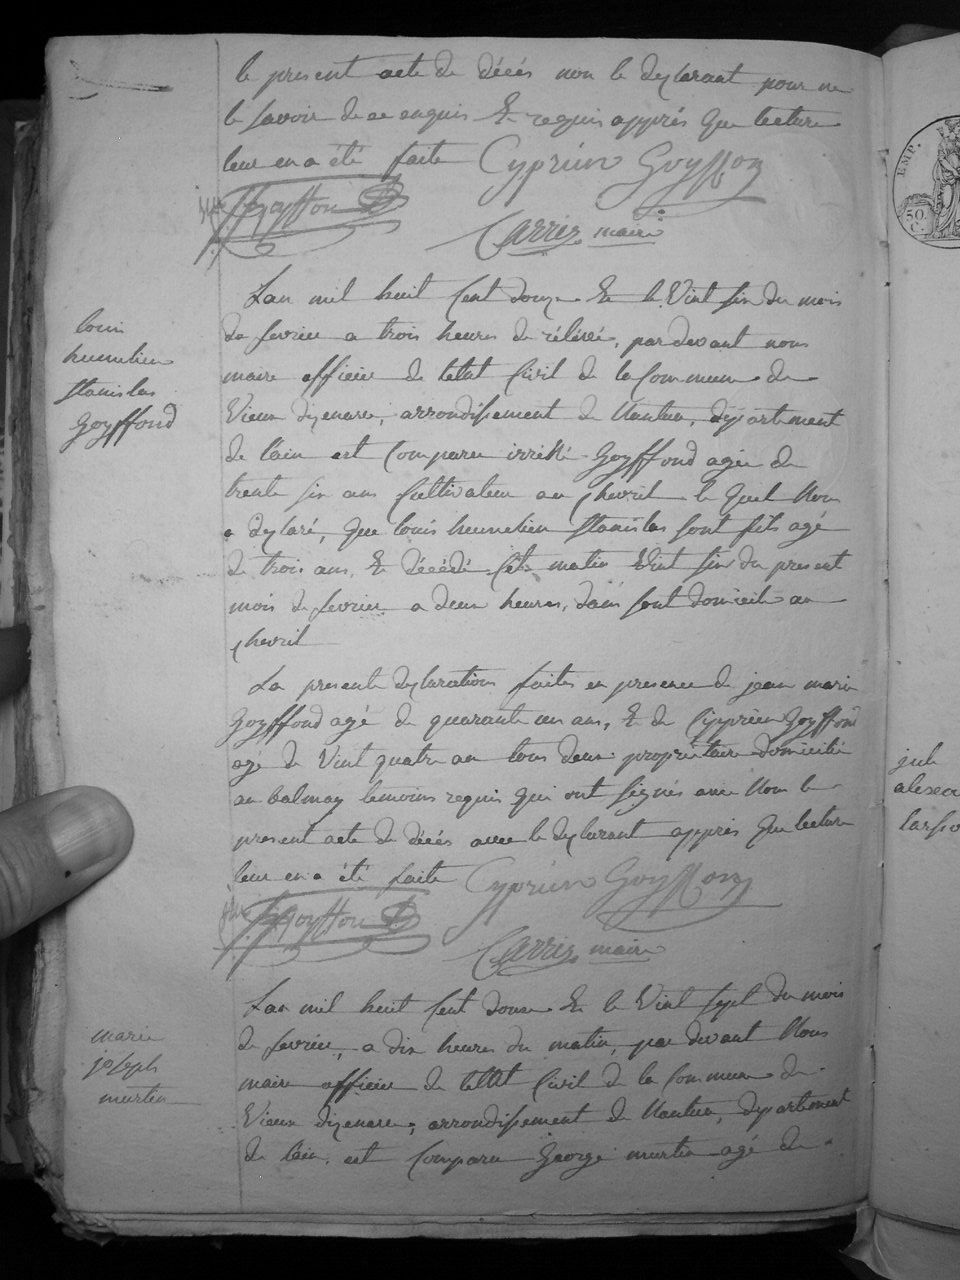 le present acte de décés non le dyclarant pour ne
le savoir de ce enquis Et requis appres que lecture
leur en a été faite Cyprien Goyffon
jm Goyffon
Carrier maire
Lan mil huit Cent douze Et le Vint six du mois
de fevrier a trois heures de rélévé, pardevant nous
maire officier de letat Civil de la Commune de
Vieux dizenave, arrondissement de Nantua, dypartement
de lain est Comparu Goyffond agée de
trente six ans Cultivateur au chevril le quel Nous
a dyclaré, que louis humelien Stanislas sont fils agé
de trois ans, Et décédé cete matin Vint six du present
mois de fevrier a deux heures, dans sont domicile au
chevril
La presente dyclarations faites en presence de jean marie
Goyffond agé de quarante un ans, Et de Cipprien Goyffond
agé de Vint quatre an tous deux propriétaire domicilié
au balmay temoins requis qui ont signés avec Nous le
present acte de décés avec le dyclarant appres que lecture
leur en a été faite Cyprien Goyffon
jm Goyffon
Carrier maire
Lan mil huit Cent douze Et le Vint sept du mois
de fevrier, a dix heures du matin, par devant Nous
maire officier de letat Civil de la Commune de
Vieux dizenave, arrondissement de Nantua, dypartement
de lain, est Comparu George murtin agé de
louis
humelien
Stanislas
Goyffond
marie
joseph
murtin
EMP.
50.
C.
jule